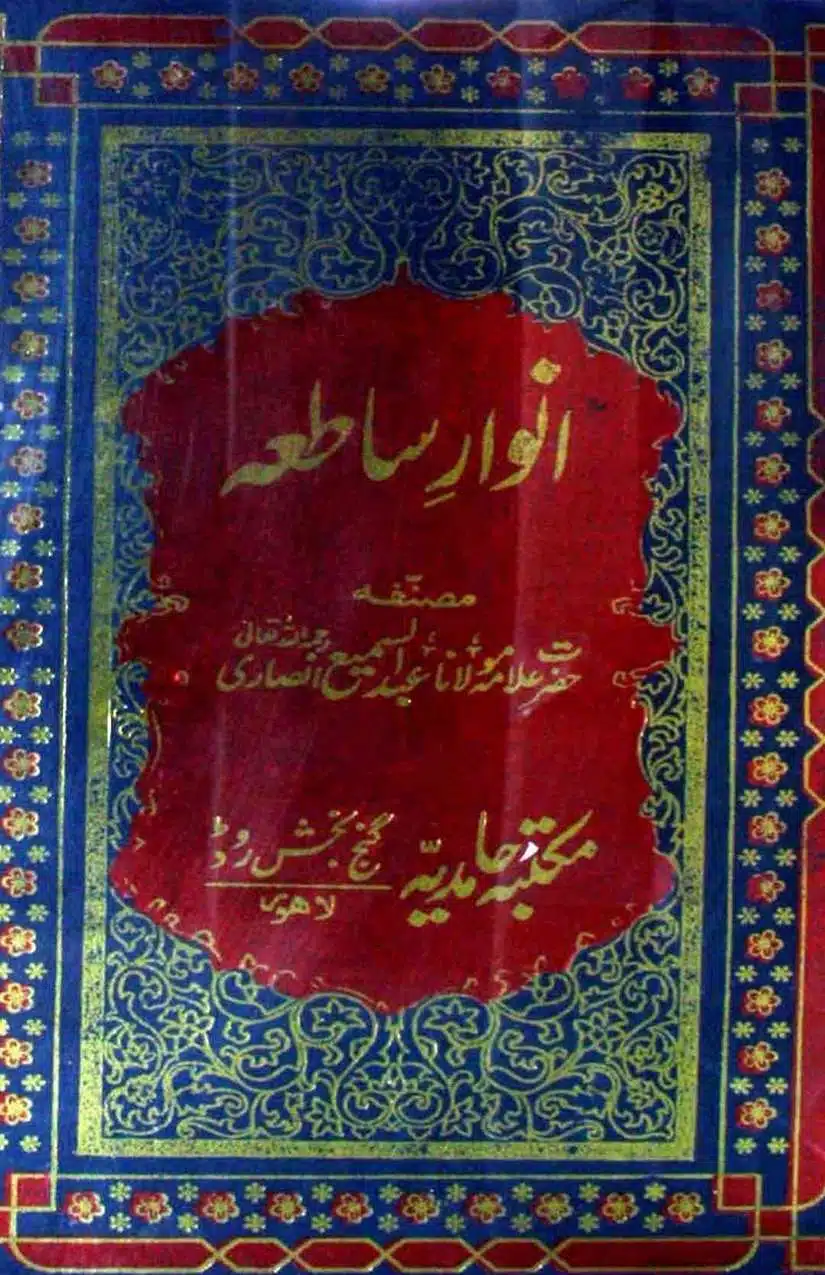 انوارِ ساطعہ
مصنّفہ
حضرت علامہ مولانا عبدالسمیع انصاری رحمۃ اللہ تعالیٰ
مکتبہ حامدیّہ گنج بخش روڈ
لاہور